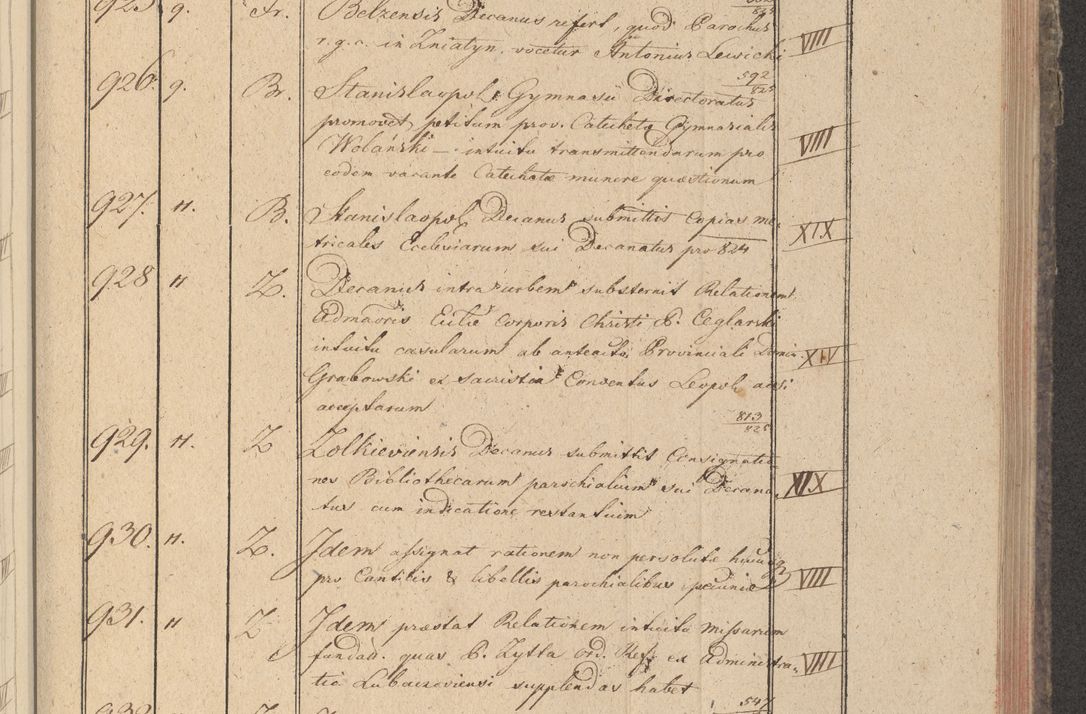 925 9. Fr. Belzensis Decanus refert, quod Parochus
r. g. c. in Żniatyn vocetur Antonius Lewicki VIII
592/825
926. 9. Br. Stanislaopol. Gymnasii Directoratus
promovet petitum prov. Catechetae Gymnasialis
Wolański — intuitu transmittendarum pro VIII
eodem vacante Catechetae munere quaestionum
927. 11. B. Stanislaopol. Decanus submittit Copias ma-
tricales Ecclesiarum sui Decanatus pro 824 XIX
928 11 Z. Decanus intra urbem substernit Relationem
Admaoris Corporis Christi P. Ceglarski
intuitu casularum ab anteacto Provinciali Domin. XIV
Grabowski ex sacristia Conventus Leopol.
acceptarum
813/825
929. 11. Z Zolkieviensis Decanus submittit Consignatio
nes Bibliothecarum parochialium sui Decana- XIX
tus cum indicatione restantium
930. 11. Z. Idem assignat rationem non persolutae hucusq
pro Canticis & libellis parochialibus pecuniae VIII
931. 11 Z Idem praestat Relationem intuitu Missarum
fundat. quas P. Zytta Ord. Ref. ex Administra- VIII
tio Lubaczoviensi supplendas habet
547
932